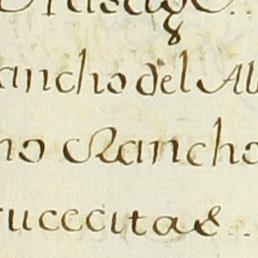 ancho del Al
no Rancho
rucecitas